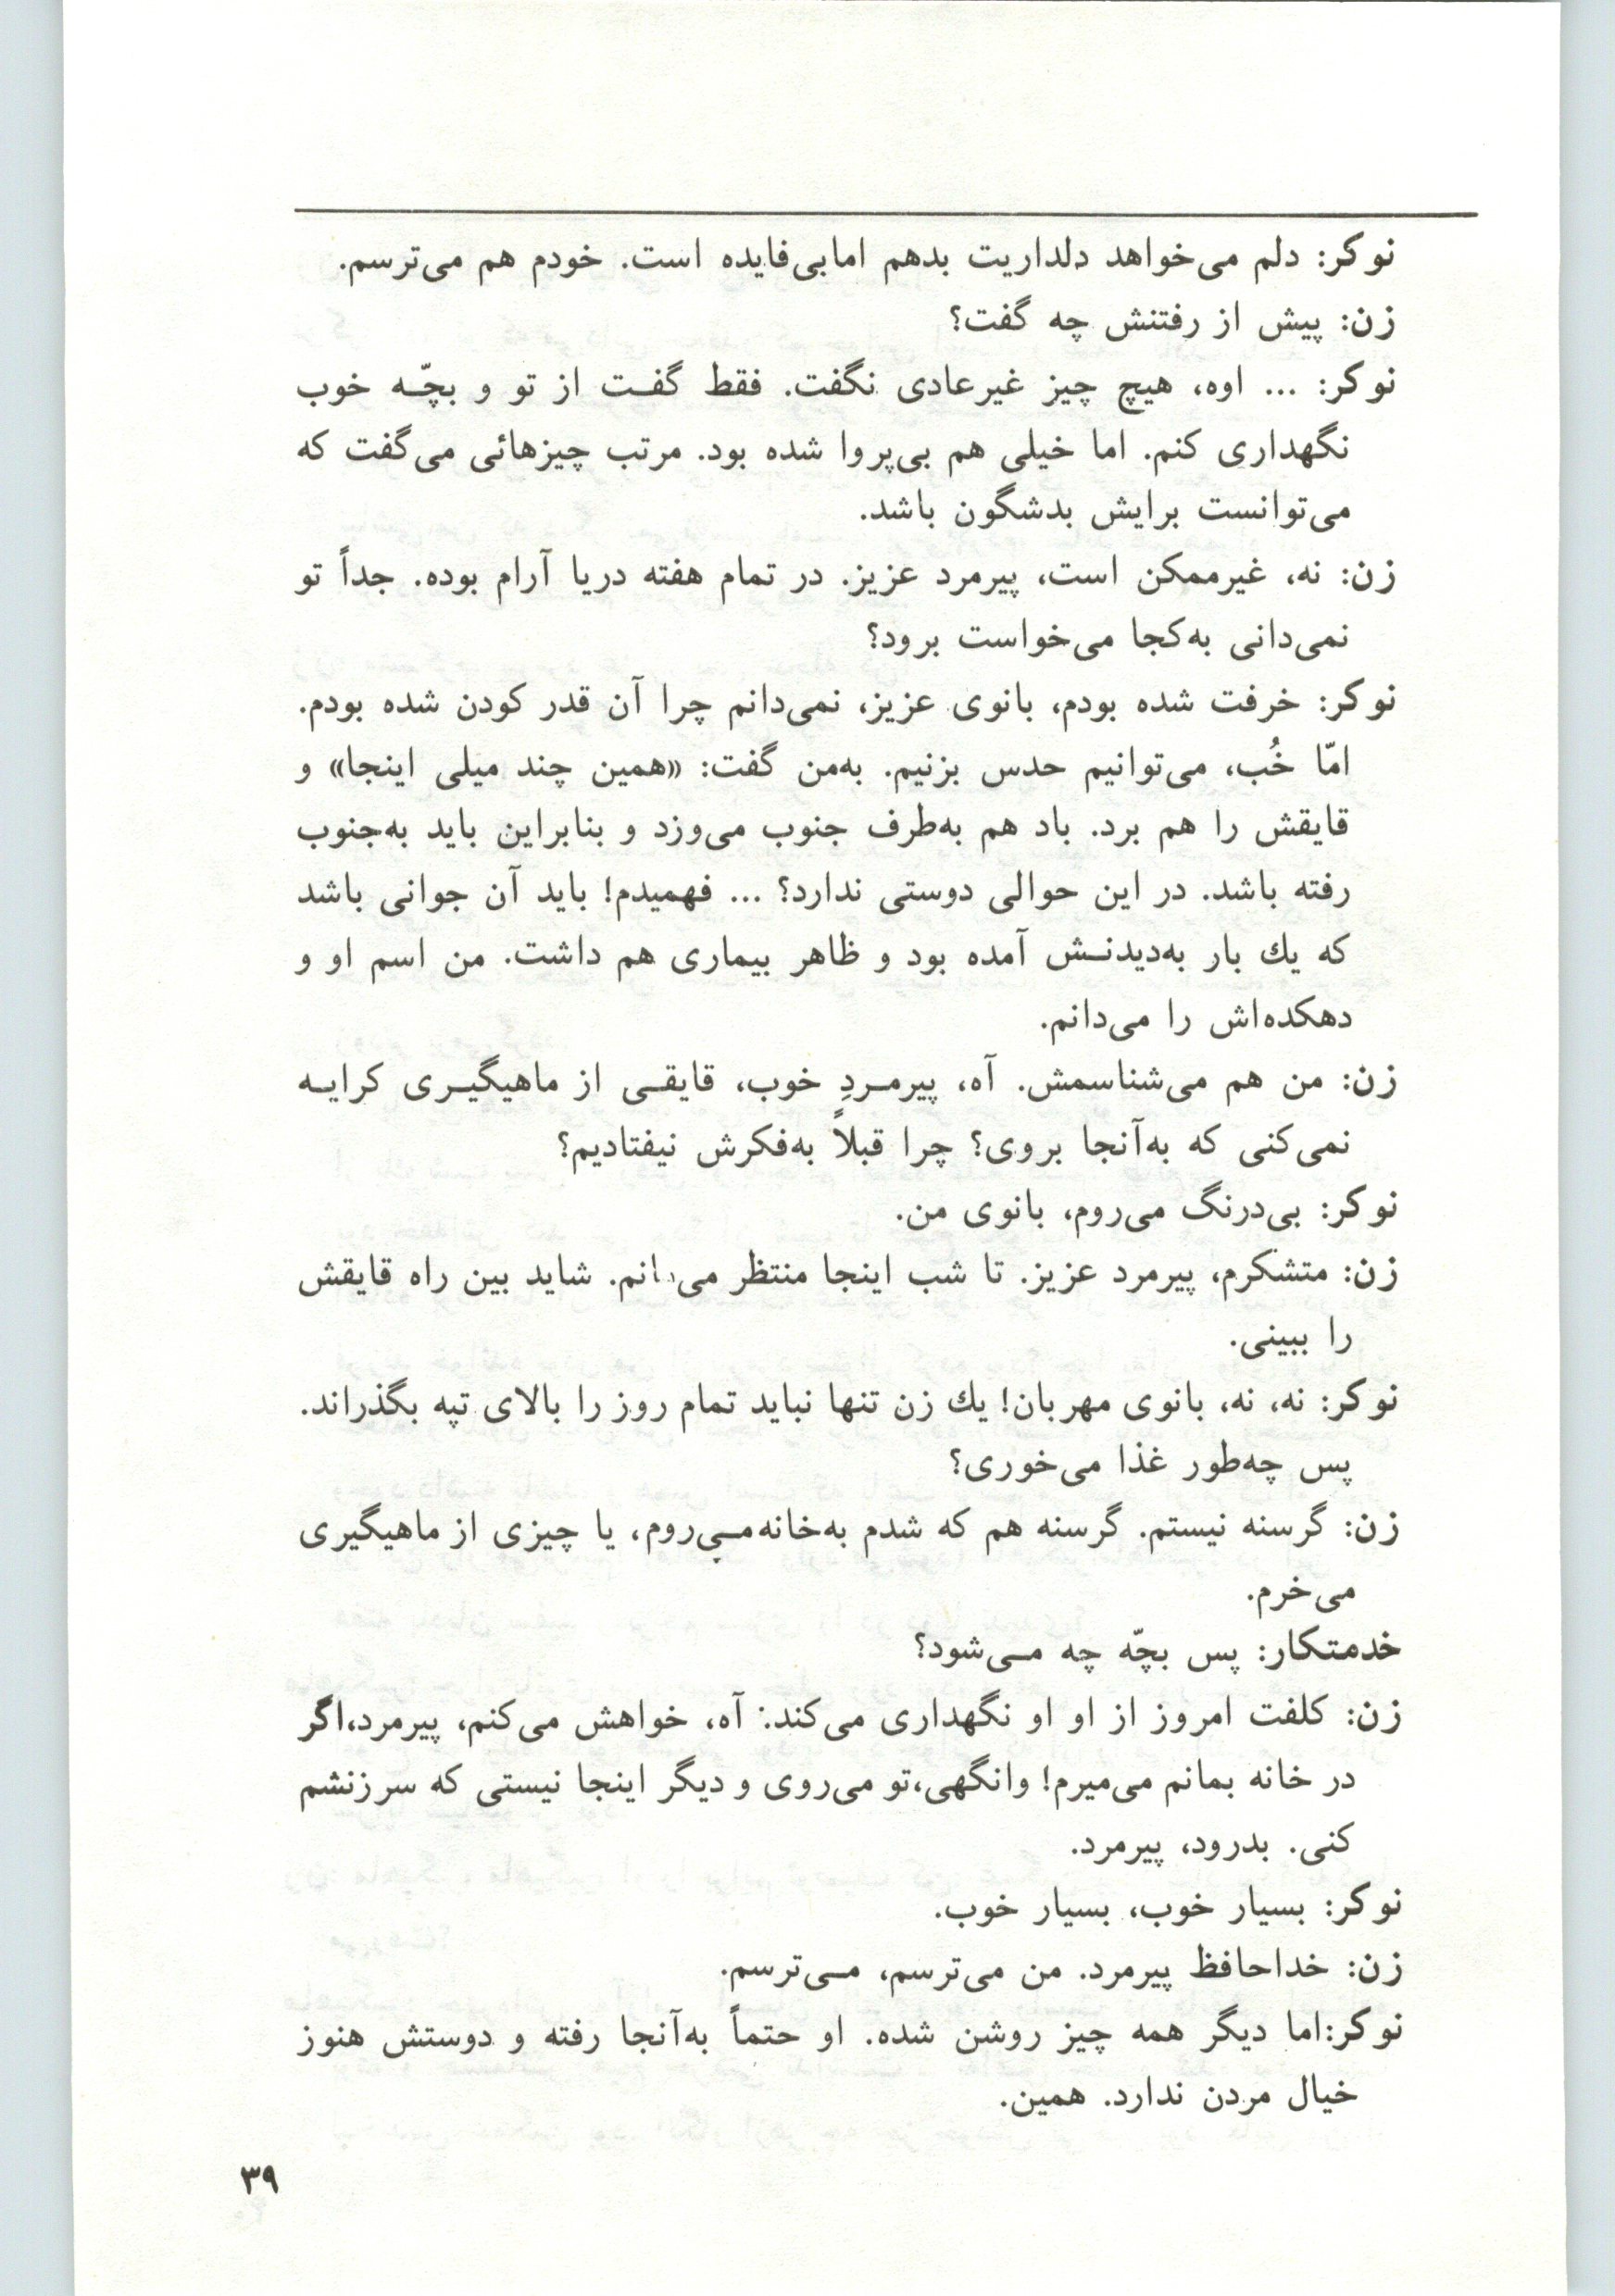 نوکر: دلم می‌خواهد دلداریت بدهم امابی‌فایده است. خودم هم می‌ترسم.
زن: پیش از رفتنش چه گفت؟
نوکر: ... اوه، هیچ چیز غیرعادی نگفت. فقط گفت از تو و بچّه خوب
نگهداری کنم. اما خیلی هم بی‌پروا شده بود. مرتب چیزهائی می‌گفت که
می‌توانست برایش بدشگون باشد.
زن: نه، غیرممکن است، پیرمرد عزیز. در تمام هفته دریا آرام بوده. جداً تو
نمی‌دانی به‌کجا می‌خواست برود؟
نوکر: خرفت شده بودم، بانوی عزیز، نمی‌دانم چرا آن قدر کودن شده بودم.
امّا خُب، می‌توانیم حدس بزنیم. به‌من گفت: «همین چند میلی اینجا» و
قایقش را هم برد. باد هم به‌طرف جنوب می‌وزد و بنابراین باید به‌جنوب
رفته باشد. در این حوالی دوستی ندارد؟ ... فهمیدم! باید آن جوانی باشد
که یك بار به‌دیدنش آمده بود و ظاهر بیماری هم داشت. من اسم او و
دهکده‌اش را می‌دانم.
زن: من هم می‌شناسمش. آه، پیرمردِ خوب، قایقی از ماهیگیری کرایه
نمی‌کنی که به‌آنجا بروی؟ چرا قبلاً به‌فکرش نیفتادیم؟
نوکر: بی‌درنگ می‌روم، بانوی من.
زن: متشکرم، پیرمرد عزیز. تا شب اینجا منتظر می‌مانم. شاید بین راه قایقش
را ببینی.
نوکر: نه، نه، بانوی مهربان! یك زن تنها نباید تمام روز را بالای تپه بگذراند.
پس چه‌طور غذا می‌خوری؟
زن: گرسنه نیستم. گرسنه هم که شدم به‌خانه‌می‌روم، یا چیزی از ماهیگیری
می‌خرم.
خدمتکار: پس بچّه چه می‌شود؟
زن: کلفت امروز از او او نگهداری می‌کند. آه، خواهش می‌کنم، پیرمرد،اگر
در خانه بمانم می‌میرم! وانگهی،تو می‌روی و دیگر اینجا نیستی که سرزنشم
کنی. بدرود، پیرمرد.
نوکر: بسیار خوب، بسیار خوب.
زن: خداحافظ پیرمرد. من می‌ترسم، می‌ترسم.
نوکر:اما دیگر همه چیز روشن شده. او حتماً به‌آنجا رفته و دوستش هنوز
خیال مردن ندارد. همین.
۳۹